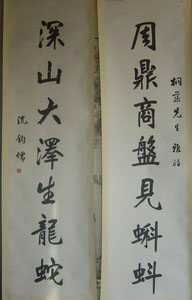 周鼎商盤見蝌蚪
深山大澤生龍蛇
沈鈞儒